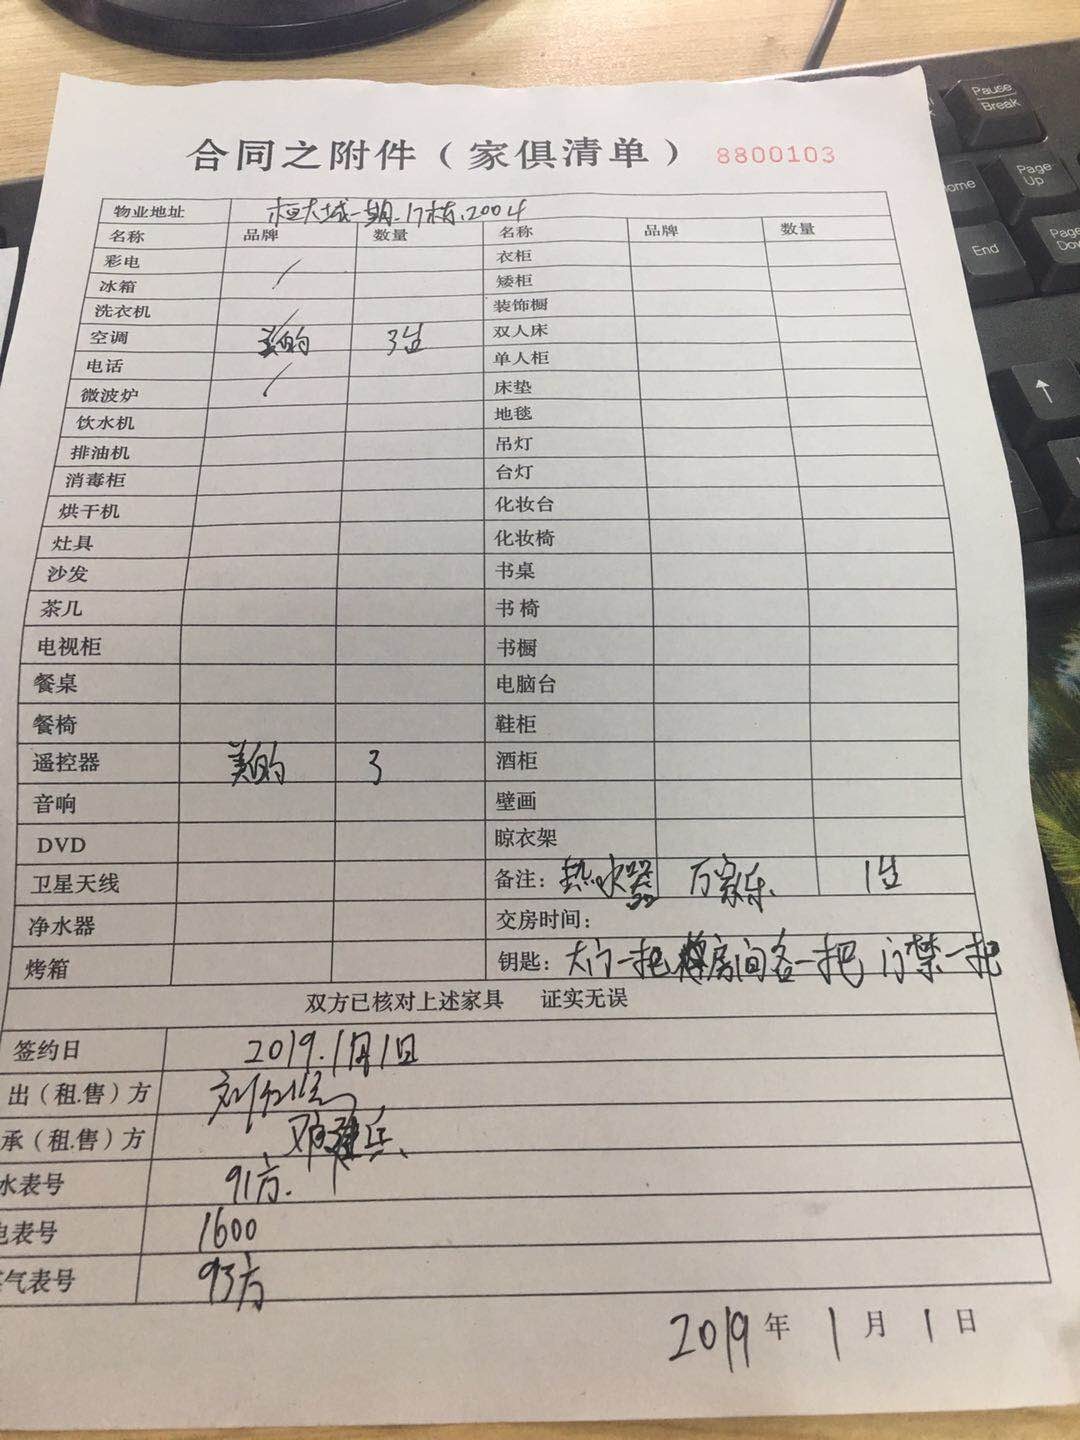 合同之附件（家俱清单） 8800103
物业地址 恒大城一期.17栋.2004
名称 品牌 数量 名称 品牌 数量
彩电 衣柜
冰箱 矮柜
洗衣机 装饰橱
空调 美的 3台 双人床
电话 单人柜
微波炉 床垫
饮水机 地毯
排油机 吊灯
消毒柜 台灯
烘干机 化妆台
灶具 化妆椅
沙发 书桌
茶几 书椅
电视柜 书橱
餐桌 电脑台
餐椅 鞋柜
遥控器 美的 3 酒柜
音响 壁画
DVD 晾衣架
卫星天线 备注：热水器 万家乐. 1台
净水器 交房时间：
烤箱 钥匙：大门一把 房间各一把 门禁一把
双方已核对上述家具 证实无误
签约日 2019.1月1日
出（租.售）方
承（租.售）方
水表号 91方.
电表号 1600
气表号 93方
2019年1月1日
Pause
Break
Home
Page
Up
End
Page